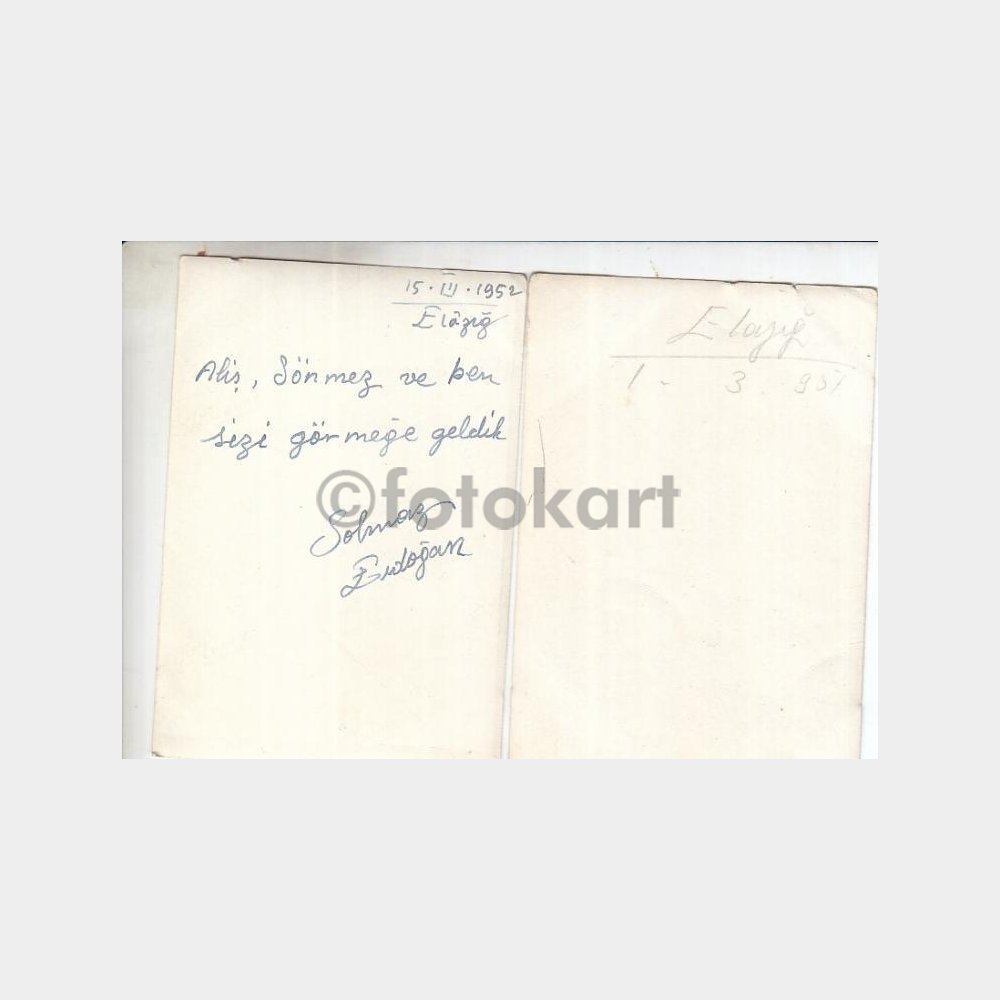 15. III. 1952
Elâzığ
Aliş, Sönmez ve ben
sizi görmeğe geldik
Solmaz
Erdoğan
Elazığ
1 - 3 951
©fotokart